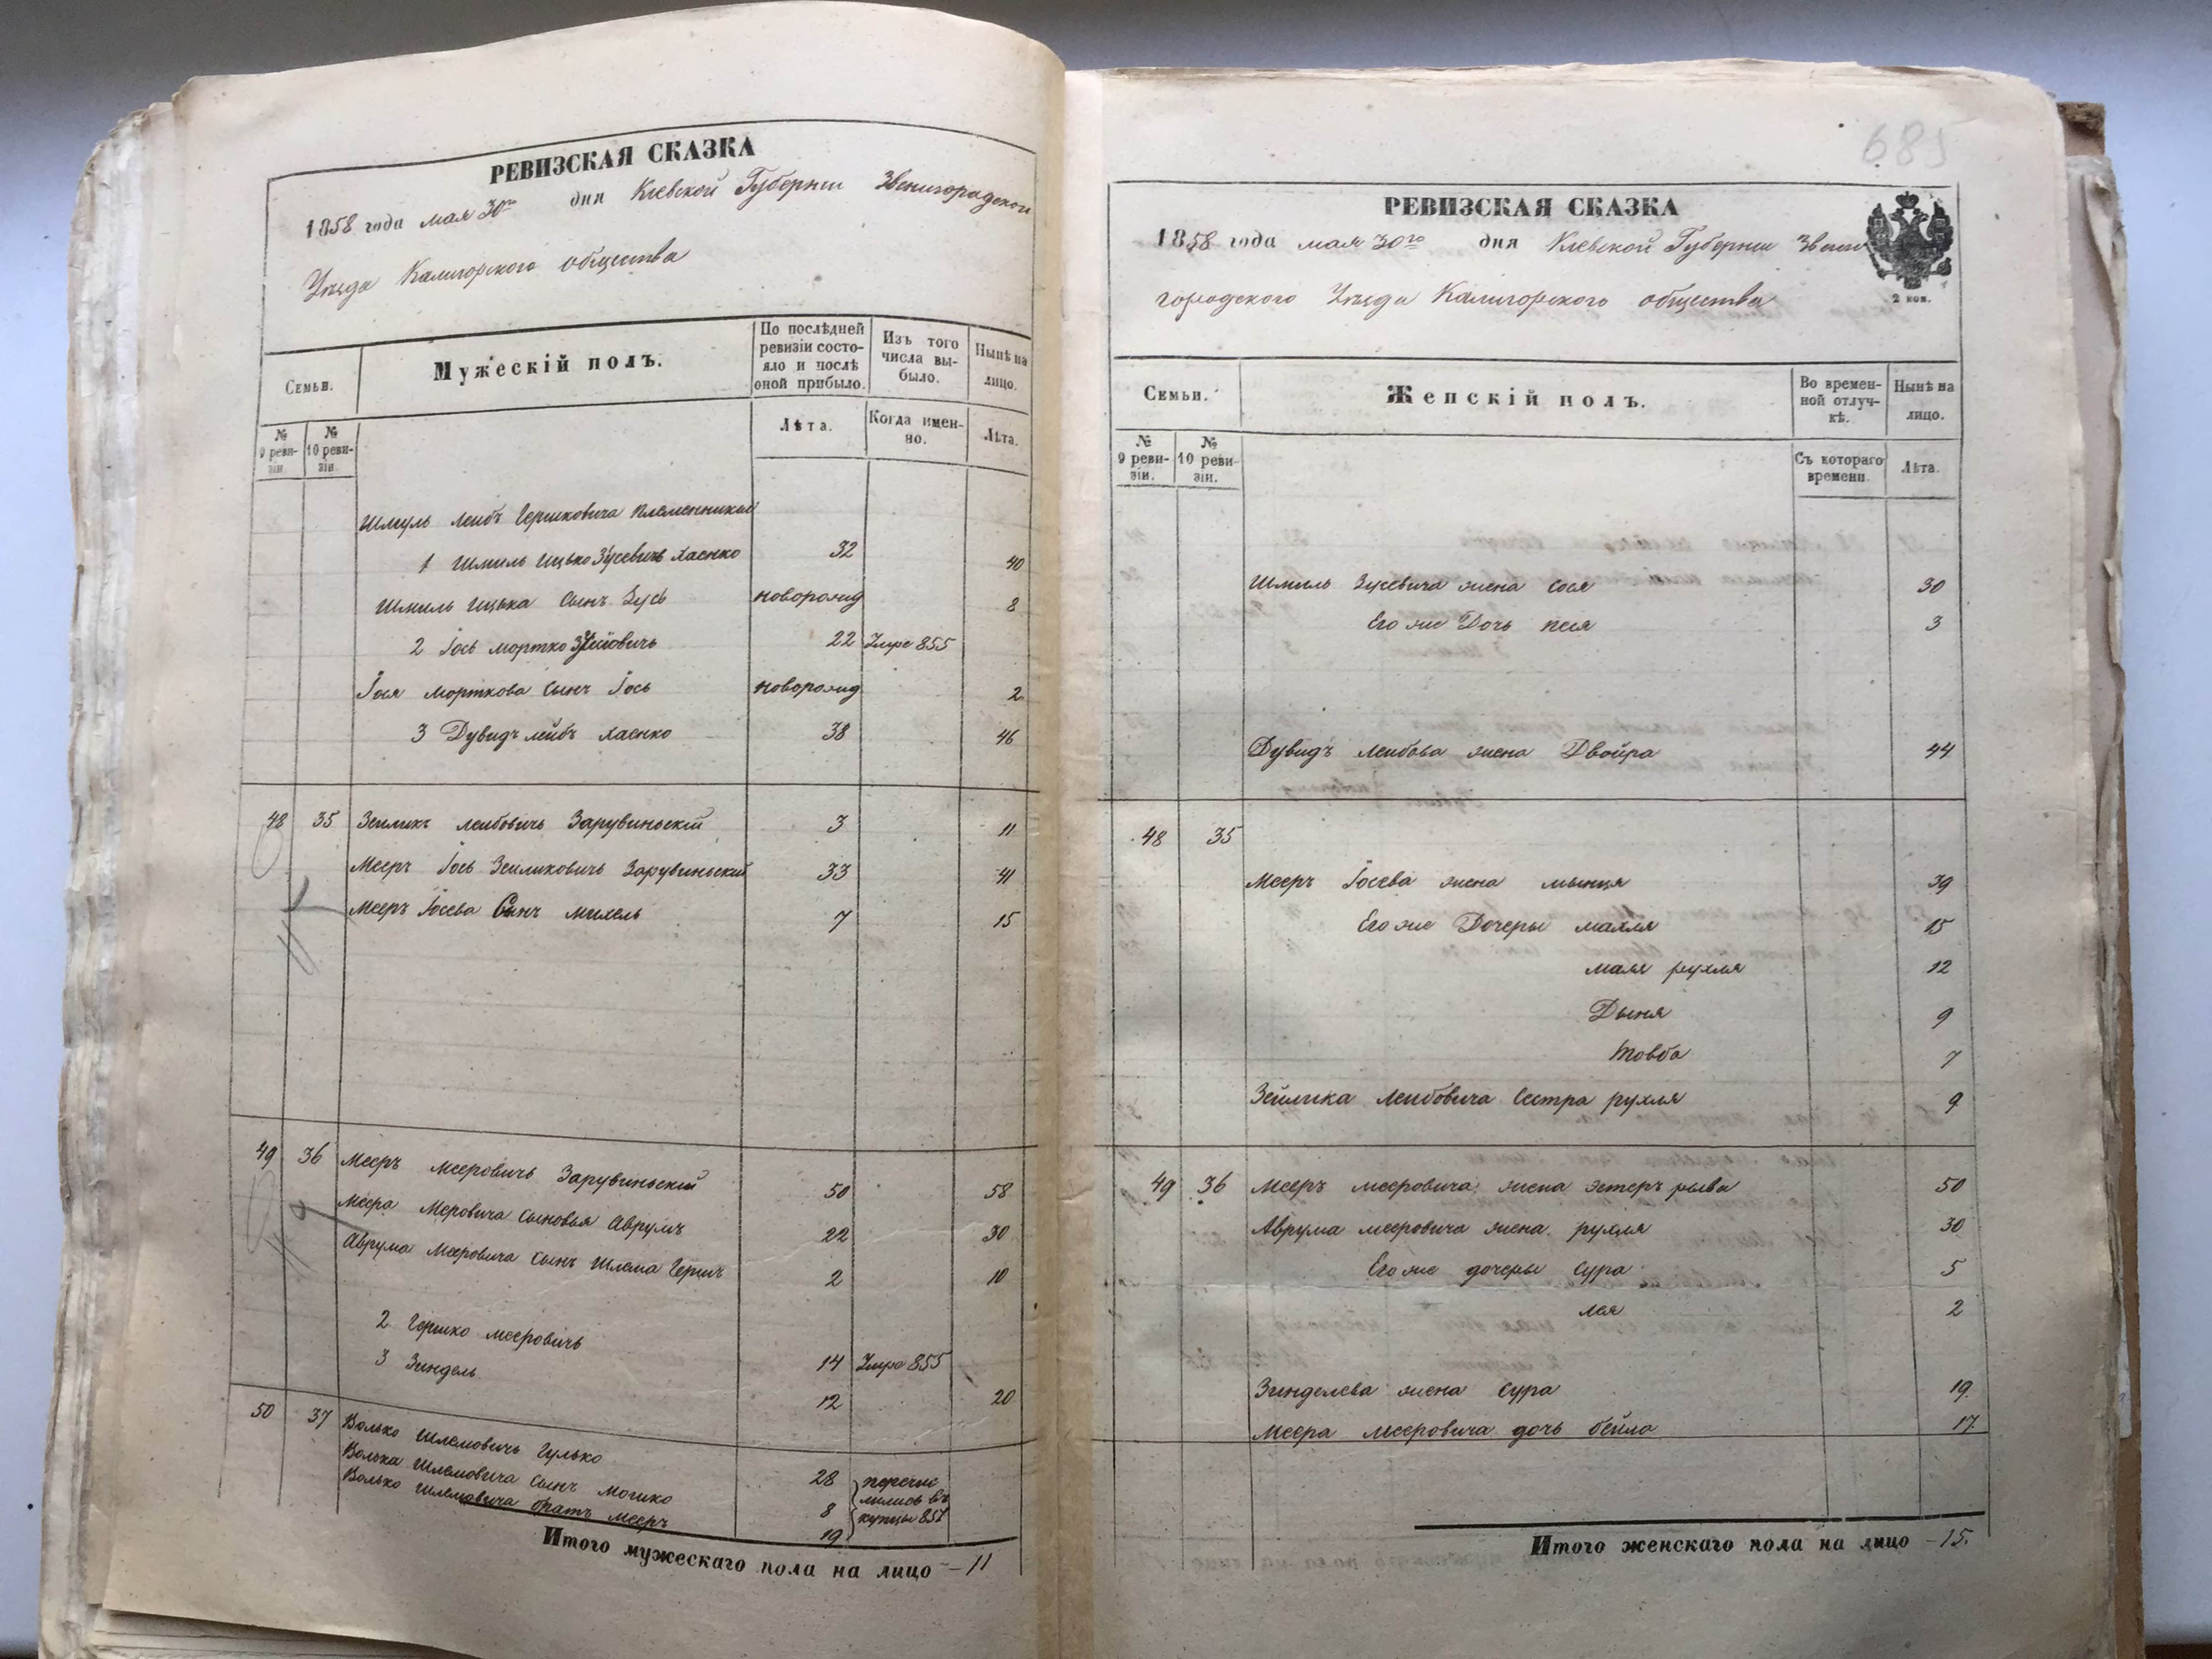 РЕВИЗСКАЯ СКАЗКА
1858 года мая 30го дня Кіевской Губерніи Звенигородской
Уѣзда Калигорского общества
Семьи.
Мужескій полъ.
По послѣдней ревизіи состояло и послѣ оной прибыло.
Изъ того числа выбыло.
Нынѣ на лицо.
№ 9 ревизіи.
№ 10 ревизіи.
Лѣта.
Когда именно.
Лѣта.
Шмуль Лейбъ Гершковича племенники
1 Шмиль Ицько Зусевичъ Хаенко 32 40
Шмиль Ицька сынъ Зусь новорожд 8
2 Іось Мортко 22 Умре 855
Іося Морткова сынъ Іось новорожд 2
3 Дувидъ Лейбъ Хаенко 38 46
48 35 Зейликъ Лейбовичъ Зарубиньскій 3 11
Мееръ Іось Зейликовичъ Зарубиньский 33 41
Мееръ Іосева Сынъ Михель 7 15
49 36 Мееръ Мееровичъ Зарубиньский 50 58
Меера Меровича сыновья Аврумъ 22 30
Аврума Мееровича сынъ Шлема Гершъ 2 10
2 Гершко Мееровичъ 14 Умре 855
3 Зиндель 12 20
50 37 Волько Шлемовичъ Гулько 28 перечис
Волька Шлемовича сынъ Мошко 8 лились въ
Волько Шлемовича братъ Мееръ 19 купцы 857
Итого мужескаго пола на лицо - 11
685
РЕВИЗСКАЯ СКАЗКА
1858 года мая 30го дня Кіевской Губерніи Звени
городского Уѣзда Калигорского общества
2 коп.
Семьи.
Женскій полъ.
Во временной отлучкѣ.
Нынѣ на лицо.
№ 9 ревизіи.
№ 10 ревизіи.
Съ котораго времени.
Лѣта.
Шмиль Зусевича жена Сося 30
Его же Дочь Песя 3
Дувидъ Лейбова жена Двойра 44
48 35
Мееръ Іосева жена Мынця 39
Его же Дочеры Махля 15
Маля Рухля 12
Дыня 9
Товба 7
Зейлика Лейбовича Сестра Рухля 9
49 36 Мееръ Мееровича жена Эстеръ Рыва 50
Аврума Мееровича жена Рухля 30
Его же дочеры Сура 5
Лея 2
Зинделева жена Сура 19
Меера Мееровича дочь Бейла 17
Итого женскаго пола на лицо - 15.